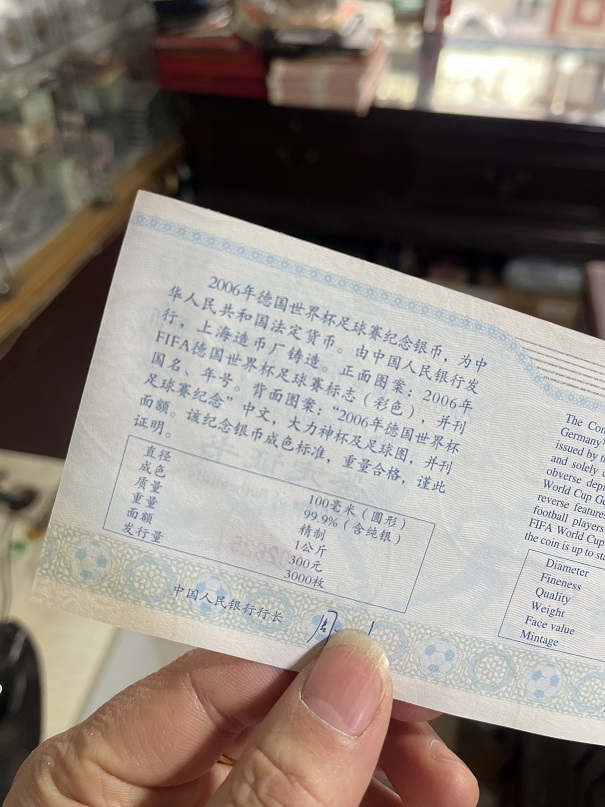 2006年德国世界杯足球赛纪念银币，为中
华人民共和国法定货币。由中国人民银行发
行，上海造币厂铸造。正面图案：2006年
FIFA德国世界杯足球赛标志（彩色），并刊
国名、年号。背面图案：“2006年德国世界杯
足球赛纪念”中文，大力神杯及足球图，并刊
面额。该纪念银币成色标准，重量合格，谨此
证明。
直径 100毫米（圆形）
成色 99.9%（含纯银）
质量 精制
重量 1公斤
面额 300元
发行量 3000枚
中国人民银行行长
The Com
Germany
issued by th
and solely
obverse dep
World Cup Ge
reverse features
football players
FIFA World Cup
the coin is up to sta
Diameter
Fineness
Quality
Weight
Face value
Mintage